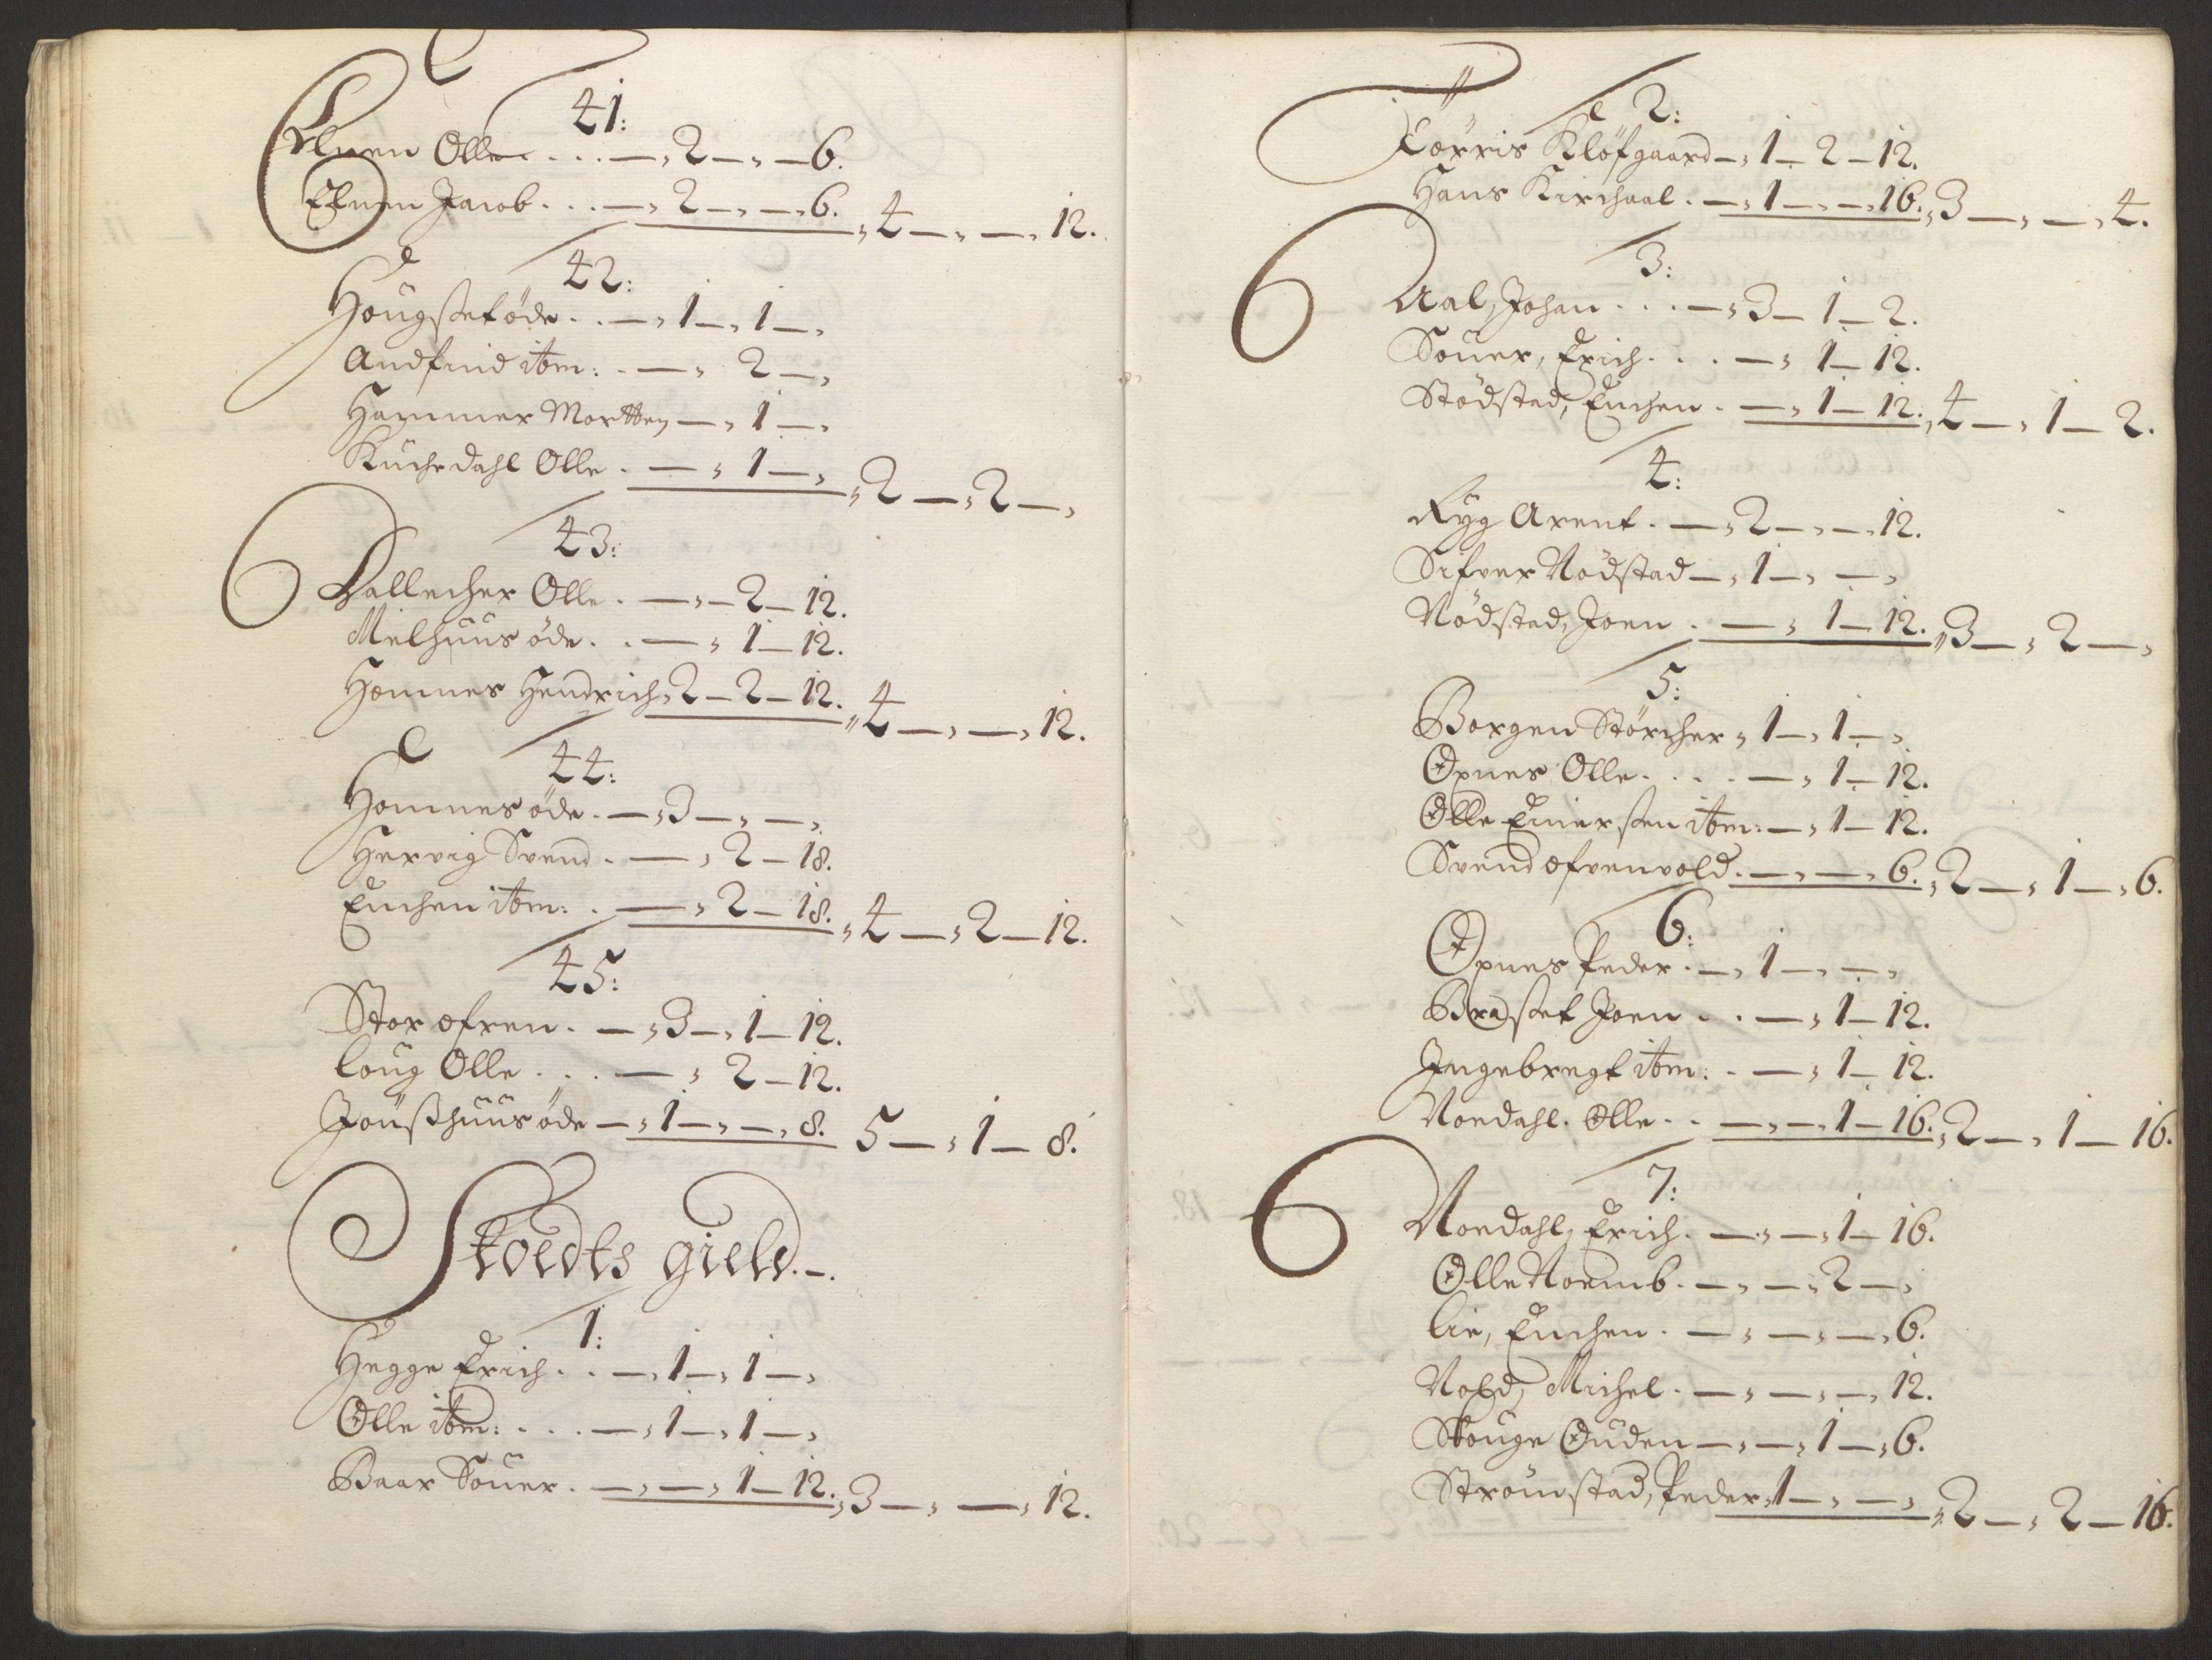 41:
Elnen Olle . . . . — „ 2 — „ — 6.
Elnen Jacob . . . — „ 2 — „ — „ 6. „ 4 — „ — „ 12.
42:
Hougstet öde . . — „ 1 — „ 1 — „
Andfind ibm: . — „ 2 — „
Hammer Mortten — „ 1 — „
Kuchedahl Olle . — „ 1 — „ „ 2 — „ 2 — „
43:
Ballecher Olle . — „ — 2 — 12.
Melhuus öde . . — „ 1 — 12.
Homnes Hendrich „ 2 — 2 — 12. „ 4 — „ — „ 12.
44:
Homnes öde . — „ 3 — „ — „
Hervig Svend . — „ 2 — 18.
Enchen ibm: . — „ 2 — 18. „ 4 — „ 2 — 12.
45:
Stor ofren . — „ 3 — „ 1 — 12.
Loug Olle . . . — „ 2 — 12.
Joußhuus öde — „ 1 — „ — „ 8. 5 — „ 1 — 8.
Stoedts gield . — .
1:
Hegge Erich . . — „ 1 — „ 1 — „
Olle ibm: . . . — „ 1 — „ 1 — „
Baar Souer . — „ — „ 1 — 12. „ 3 — „ — „ 12.
2:
Körris Klöfgaard — „ 1 — 2 — 12.
Hans Kirchaal . — „ 1 — „ — „ 16. „ 3 — „ — „ 4.
3:
Aal, Johan . . . — „ 3 — 1 — 2.
Souer, Erich . . . — „ 1 — 12.
Stödstad, Enchen . — „ 1 — 12. „ 4 — „ 1 — 2.
4:
Ryg Arent . — „ 2 — „ — „ 12.
Sifver Nödstad — „ 1 — „ — „
Nödstad, Joen . — „ 1 — 12. „ 3 — „ 2 — „
5:
Borgen Störcher „ 1 — „ 1 — „
Opnes Olle . . . . — „ 1 — 12.
Olle Einersen ibm: — „ 1 — 12.
Svend ofvenvold . — „ — „ 6. „ 2 — „ 1 — „ 6.
6:
Opnes Peder . — „ 1 — „ — „
Bradset Joen . . — „ 1 — 12.
Ingebregt ibm: . — „ 1 — 12.
Noedahl. Olle . . — „ — „ 1 — 16. „ 2 — „ 1 — 16.
7:
Noedahl, Erich . — „ — „ 1 — 16.
Olle Noemb . — „ — „ 2 — „
Lie, Enchen . — „ — „ — „ 6.
Vold, Michel . — „ — „ — „ 12.
Skouge Ouden — „ — „ 1 — „ 6.
Strömstad, Peder „ 1 — „ — „ „ 2 — „ 2 — 16.